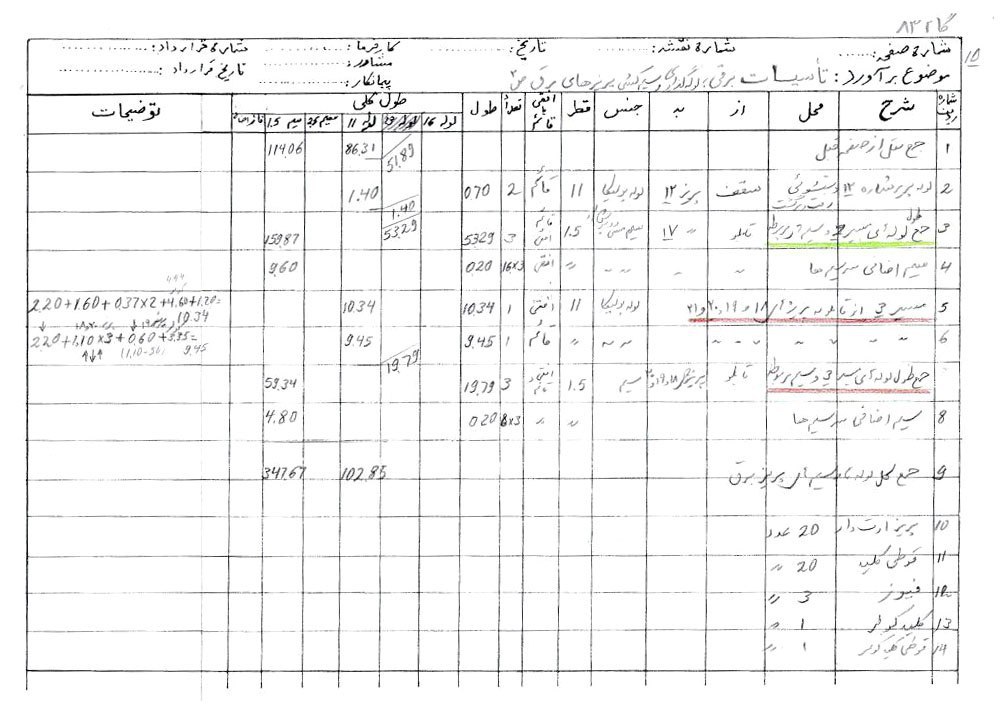 ۸۳۲ گا
۱۵
شماره صفحه: شماره نقشه: تاریخ: کارفرما: شماره قرارداد:
مشاور: تاریخ قرارداد:
موضوع برآورد: تأسیسات برقی: لوله‌گذاری و سیم‌کشی پریزهای برق پیمانکار:
شماره ردیف شرح محل از به جنس قطر افقی یا قائم تعداد طول طول کلی توضیحات
لوله 16 لوله 11 سیم 2.5 سیم 1.5
1 جمع نقل از صفحه قبل 51.89 86.31 114.06
2 لوله پریز شماره ۱۲ دستشوئی رفت و برگشت سقف پریز ۱۲ لوله پولیکا 11 قائم 2 070 1.40 1.40
53.29
3 جمع طول لوله‌های مسیر 2 و سیم مربوطه تابلو 〃 ۱۷ 1.5 قائم افقی 3 5329 159.87
4 سیم اضافی سر سیم‌ها 〃 〃 〃 〃 〃 افقی 16x3 020 9.60
5 مسیر 3 از تابلو به پریزهای ۱۸ و ۱۹ و ۲۰ و ۲۱ لوله پولیکا 11 افقی و 1 10.34 10.34 2.20+1.60+0.37x2+4.60+1.20= 10.34
6 〃 〃 〃 〃 〃 〃 〃 〃 قائم 1 9.45 9.45 2.20+1.10x3+0.60+3.35= 9.45
19.79
7 جمع طول لوله‌های مسیر 3 و سیم مربوطه تابلو سیم 1.5 افقی و قائم 3 19.79 59.34
8 سیم اضافی سر سیم‌ها 〃 〃 〃 8x3 020 4.80
9 جمع کل لوله‌ها و سیم‌های پریز برق 102.85 347.67
10 پریز ارت دار 20 عدد
11 قوطی کلید 20 〃
12 فیوز 3 〃
13 کلید کولر 1 〃
14 قوطی کلید کولر 1 〃